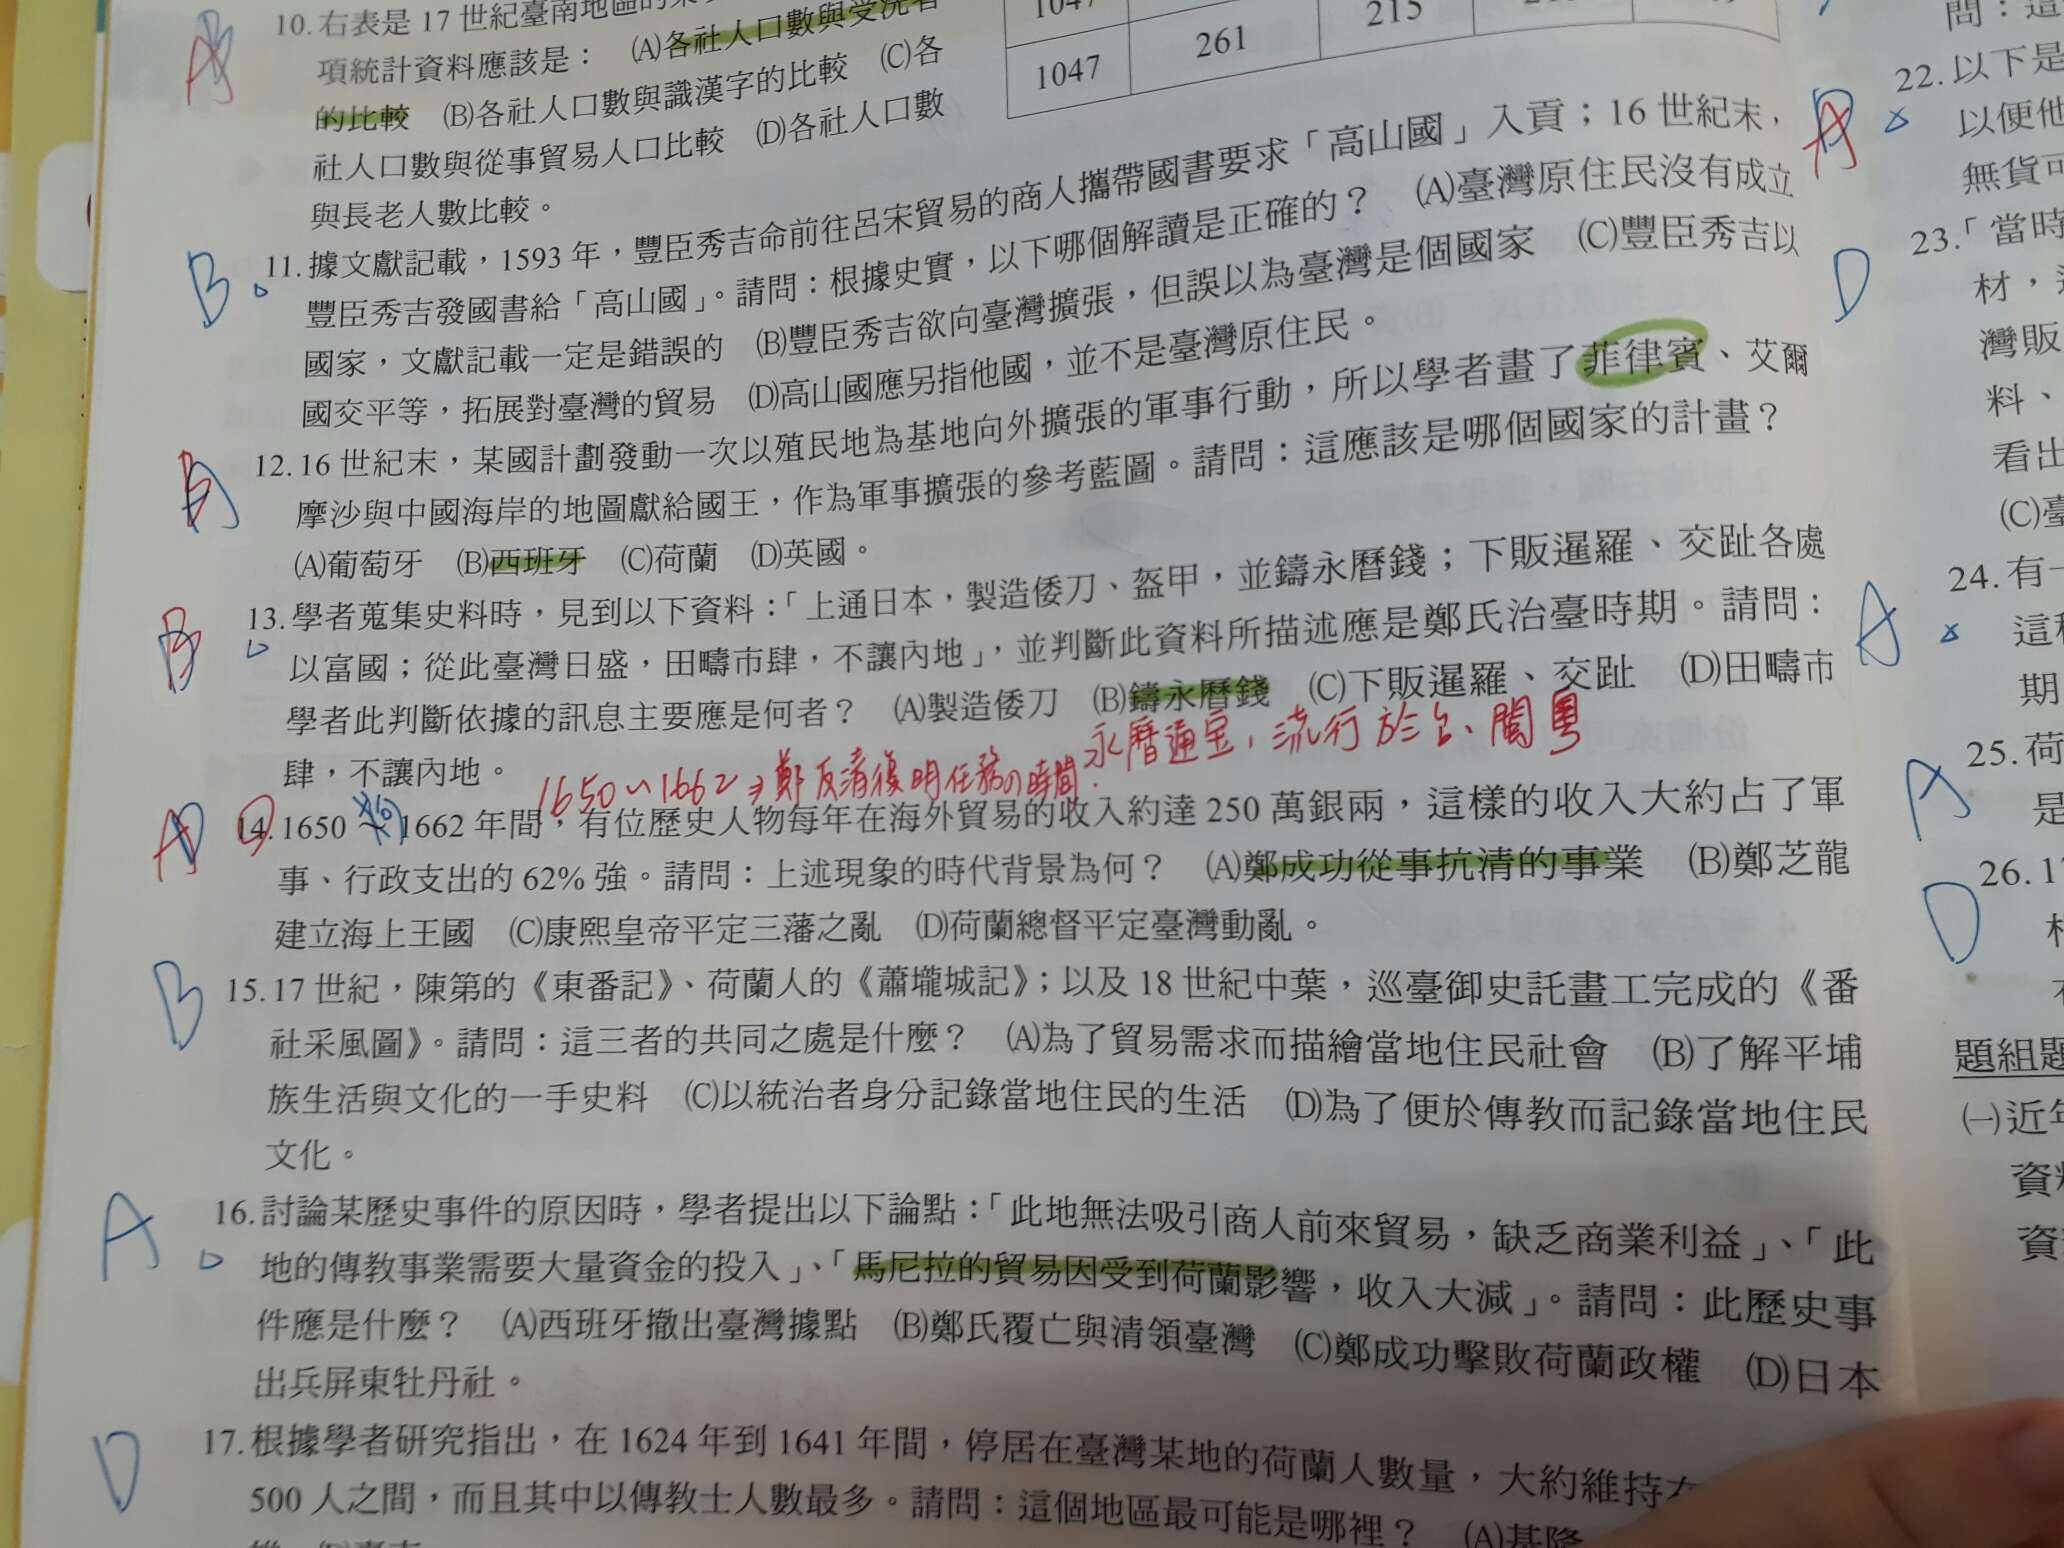 10.右表是17世紀臺南地區的
項統計資料應該是： (A)各社人口數與受洗者
的比較 (B)各社人口數與識漢字的比較 (C)各
社人口數與從事貿易人口比較 (D)各社人口數
與長老人數比較。
215
1047 261
A
B
11.據文獻記載，1593年，豐臣秀吉命前往呂宋貿易的商人攜帶國書要求「高山國」入貢；16世紀末，
豐臣秀吉發國書給「高山國」。請問：根據史實，以下哪個解讀是正確的？ (A)臺灣原住民沒有成立
國家，文獻記載一定是錯誤的 (B)豐臣秀吉欲向臺灣擴張，但誤以為臺灣是個國家 (C)豐臣秀吉以
國交平等，拓展對臺灣的貿易 (D)高山國應另指他國，並不是臺灣原住民。
12.16世紀末，某國計劃發動一次以殖民地為基地向外擴張的軍事行動，所以學者畫了菲律賓、艾爾
摩沙與中國海岸的地圖獻給國王，作為軍事擴張的參考藍圖。請問：這應該是哪個國家的計畫？
(A)葡萄牙 (B)西班牙 (C)荷蘭 (D)英國。
B
13.學者蒐集史料時，見到以下資料：「上通日本，製造倭刀、盔甲，並鑄永曆錢；下販暹羅、交趾各處
以富國；從此臺灣日盛，田疇市肆，不讓內地」，並判斷此資料所描述應是鄭氏治臺時期。請問：
學者此判斷依據的訊息主要應是何者？ (A)製造倭刀 (B)鑄永曆錢 (C)下販暹羅、交趾 (D)田疇市
肆，不讓內地。
永曆通宝，流行於台、閩粵
1650~1662⇒鄭反清復明任務の時間.
A
14.1650～1662年間，有位歷史人物每年在海外貿易的收入約達250萬銀兩，這樣的收入大約占了軍
事、行政支出的62%強。請問：上述現象的時代背景為何？ (A)鄭成功從事抗清的事業 (B)鄭芝龍
建立海上王國 (C)康熙皇帝平定三藩之亂 (D)荷蘭總督平定臺灣動亂。
B
15.17世紀，陳第的《東番記》、荷蘭人的《蕭壠城記》；以及18世紀中葉，巡臺御史託畫工完成的《番
社采風圖》。請問：這三者的共同之處是什麼？ (A)為了貿易需求而描繪當地住民社會 (B)了解平埔
族生活與文化的一手史料 (C)以統治者身分記錄當地住民的生活 (D)為了便於傳教而記錄當地住民
文化。
A
16.討論某歷史事件的原因時，學者提出以下論點：「此地無法吸引商人前來貿易，缺乏商業利益」、「此
地的傳教事業需要大量資金的投入」、「馬尼拉的貿易因受到荷蘭影響，收入大減」。請問：此歷史事
件應是什麼？ (A)西班牙撤出臺灣據點 (B)鄭氏覆亡與清領臺灣 (C)鄭成功擊敗荷蘭政權 (D)日本
出兵屏東牡丹社。
D
17.根據學者研究指出，在1624年到1641年間，停居在臺灣某地的荷蘭人數量，大約維持在
500人之間，而且其中以傳教士人數最多。請問：這個地區最可能是哪裡？ (A)基隆
問：這
A
22.以下是
以便他
無貨可
D
23.「當時
材，
灣販
料、
看出
(C)臺
A
24.有一
這
期
A
25.荷
是
D
26.17
題組題
(一)近年
資料
資